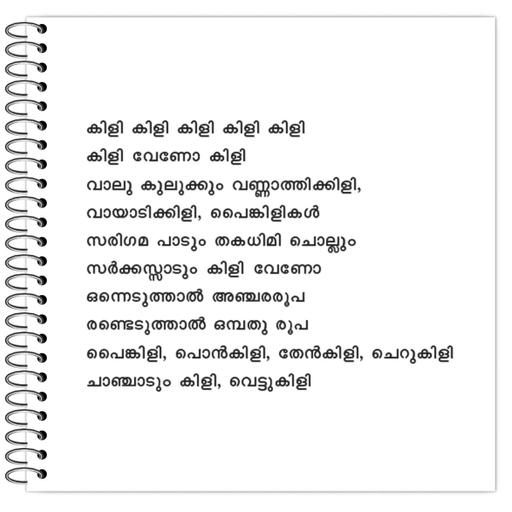 കിളി കിളി കിളി കിളി കിളി
കിളി വേണോ കിളി
വാലു കുലുക്കും വണ്ണാത്തിക്കിളി,
വായാടിക്കിളി, പൈങ്കിളികൾ
സരിഗമ പാടും തകധിമി ചൊല്ലും
സർക്കസ്സാടും കിളി വേണോ
ഒന്നെടുത്താൽ അഞ്ചരരൂപ
രണ്ടെടുത്താൽ ഒമ്പതു രൂപ
പൈങ്കിളി, പൊൻകിളി, തേൻകിളി, ചെറുകിളി
ചാഞ്ചാടും കിളി, വെട്ടുകിളി